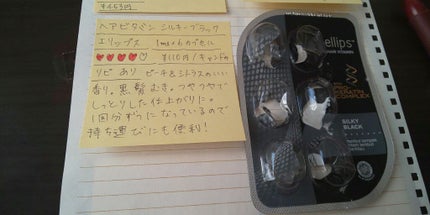 ¥453円
ヘアビタミン シルキーブラック
エリップス 1ml×6カプセル
¥110円/キャンドゥ
リピ あり ピーチ&シトラスのいい
香り。黒髪むき。つやつやで
しっとりした仕上がりに。
1回分ずつになっているので
持ち運びにも便利!
ellips
HAIR VITAMIN
PRO
KERATIN
COMPLEX
SILKY
BLACK